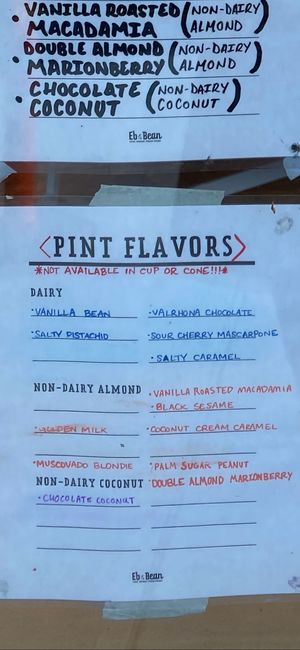 • VANILLA ROASTED (NON-DAIRY
MACADAMIA ALMOND)
DOUBLE ALMOND (NON-DAIRY
• MARIONBERRY ALMOND)
• CHOCOLATE (NON-DAIRY
COCONUT COCONUT)
Eb & Bean
<PINT FLAVORS>
*NOT AVAILABLE IN CUP OR CONE!!!*
DAIRY
• VANILLA BEAN
• VALRHONA CHOCOLATE
• SALTY PISTACHIO
• SOUR CHERRY MASCARPONE
• SALTY CARAMEL
NON-DAIRY ALMOND
• VANILLA ROASTED MACADAMIA
• BLACK SESAME
• GOLDEN MILK
• COCONUT CREAM CARAMEL
• MUSCOVADO BLONDIE
• PALM SUGAR PEANUT
• DOUBLE ALMOND MARIONBERRY
NON-DAIRY COCONUT
• CHOCOLATE COCONUT
Eb & Bean